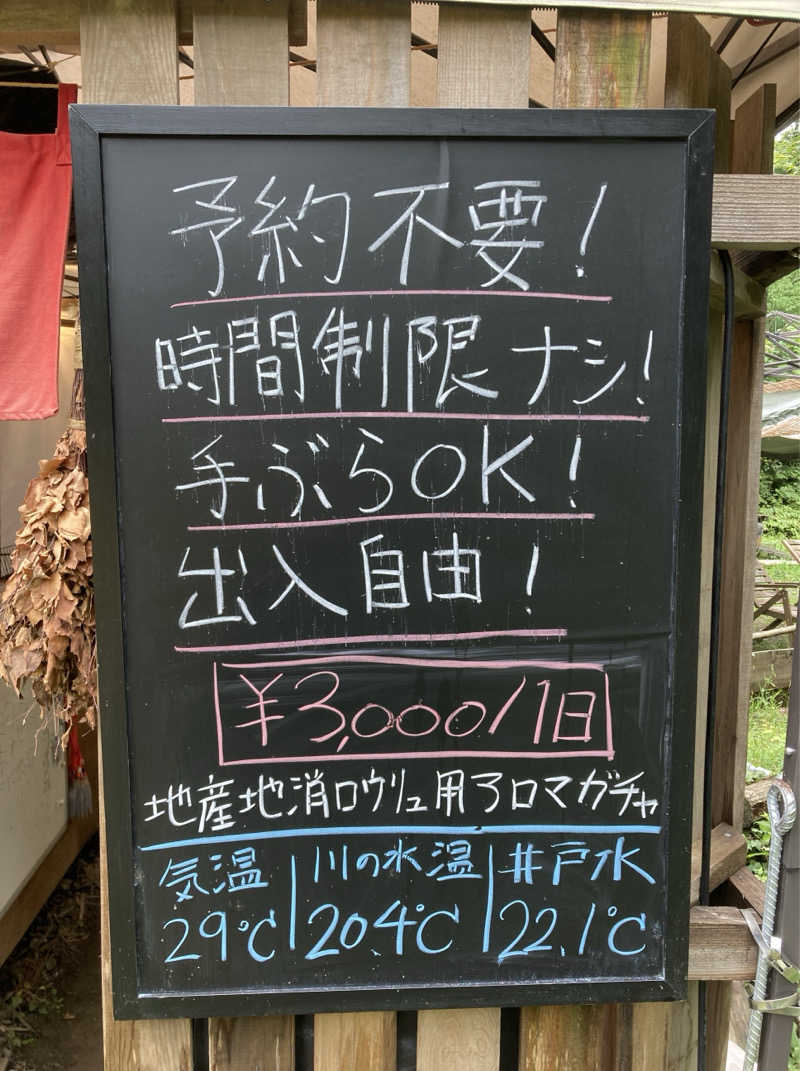 予約不要!
時間制限ナシ!
手ぶらOK!
出入自由!
¥3,000/1日
地産地消ロウリュ用アロマガチャ
気温 川の水温 井戸水
29℃ 20.4℃ 22.1℃